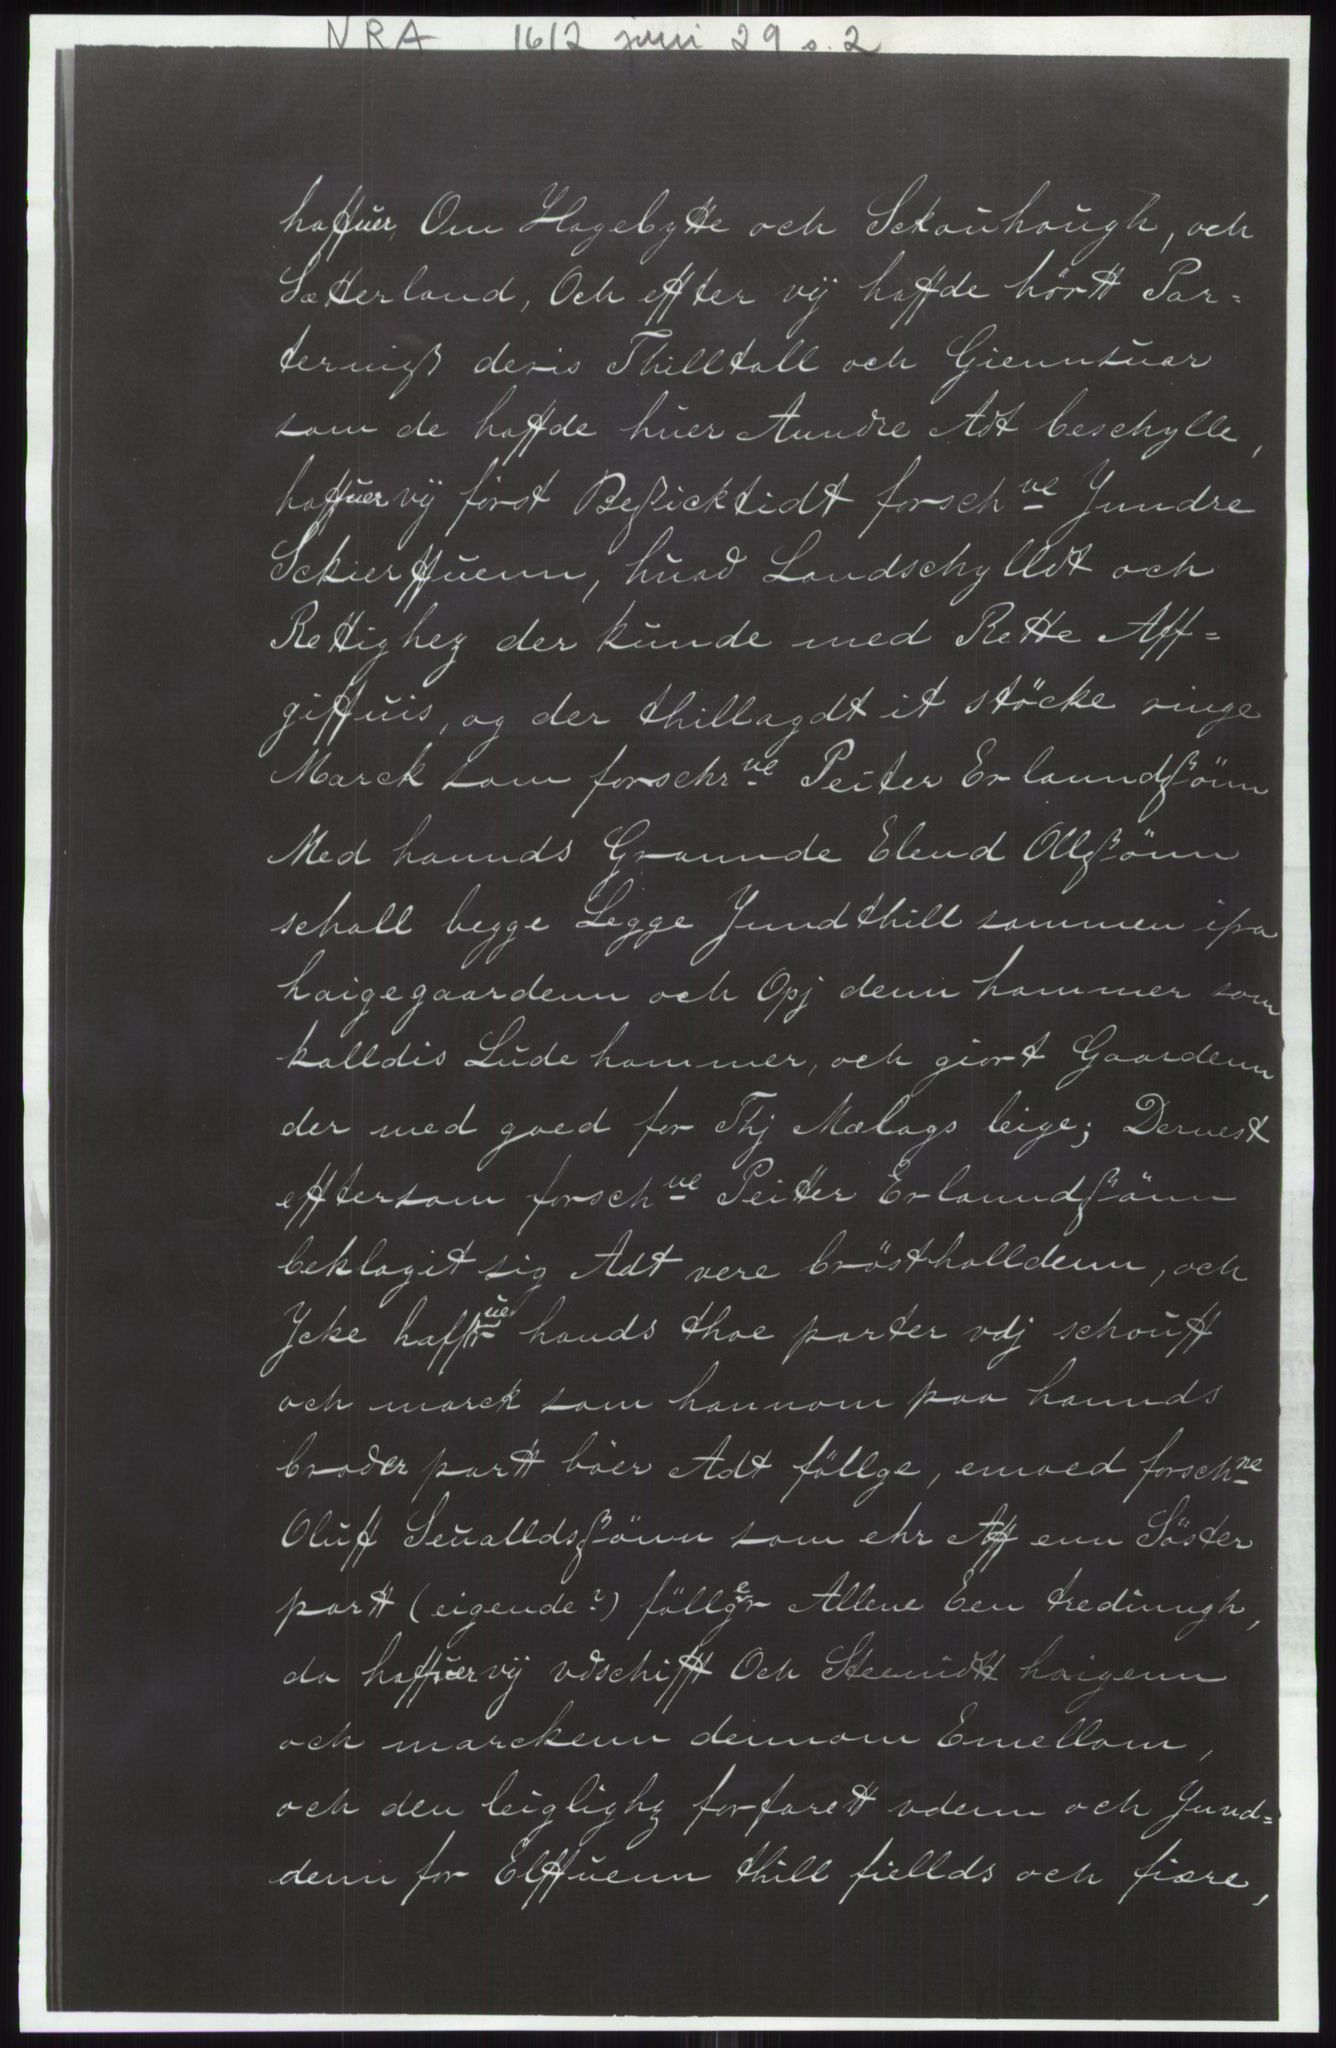 NRA 1612 juni 29 s. 2
haffuer, Om Hagebytte och Sckouhough, och
Sætterland, Och effter vÿ haffde hörtt Par=
ternisß deris Thilltall och Giennsuar
som de haffde huer Aundre Adt beschylle,
haffuer vÿ först Beßicktidt forschne Jundre
Sckierffuenn, huad Landschylldt och
Rettighez der kunde med Rette Aff=
giffuis, og der thillagdt it stöcke ringe
Marck som forschrne Peiter Erlaundßönn
Med haunds Graunde Elend Ollßönn
schall begge Legge Jund thill sammen ifra
haigegaardenn och Opj denn hammer som
kalldis Lude hammer, och giort Gaardenn
der med goed for Thj Mælags leige; Dernest
efftersom forschne Peitter Erlaundßönn
beklagit sig Adt vere brösthalldenn, och
Jcke haffue hands thoe parter vdj schouff
och marck som hannom paa haunds
broder partt böer Adt föllge, emoed forschne
Oluff Seualldsßönn som ehr Aff enn Söster
partt (eigende?) föllger Allene Een tredinngh,
da haffuer vÿ vdschifft Och Steenidtt haigenn
och marckenn dennom Emellom,
och den leiglighz forfarett vdenn och Jund=
denn for Elffuenn thill fiellds och fiære,